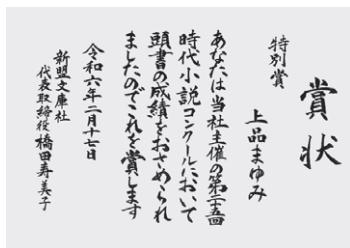 賞状
特別賞
上品まゆみ
あなたは当社主催の第二十五回
時代小説コンクールにおいて
頭書の成績をおさめられ
ましたのでこれを賞します
令和六年二月十七日
新盟文庫社
代表取締役橋田寿美子